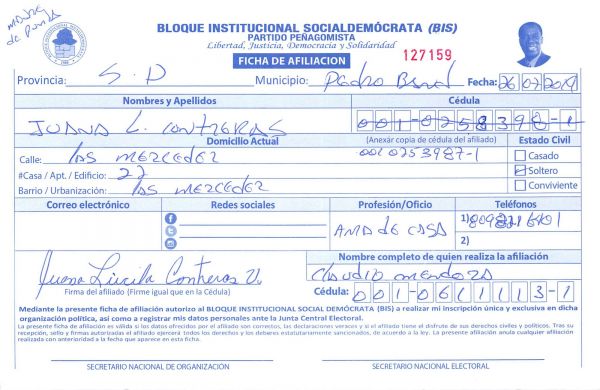 BLOQUE INSTITUCIONAL SOCIALDEMÓCRATA (BIS)
PARTIDO PEÑAGOMISTA
Libertad, Justicia, Democracia y Solidaridad
FICHA DE AFILIACION
127159
Provincia: S.D Municipio: Pedro Brand Fecha: 26/07/2019
Nombres y Apellidos Cédula
JUANA L. CONTRERAS 001-0258398-1
Domicilio Actual (Anexar copia de cédula del afiliado) Estado Civil
Calle: las MERCEDEZ 0010253987-1 Casado
#Casa / Apt. / Edificio: 27 Soltero
Barrio / Urbanización: las MERCEDEZ Conviviente
Correo electrónico Redes sociales Profesión/Oficio Teléfonos
AMA de CASA 1)
2)
Nombre completo de quien realiza la afiliación
Juana Lucila Contreras V. Claudio mendoza
Firma del afiliado (Firme igual que en la Cédula) Cédula: 001-0611113-1
Mediante la presente ficha de afiliación autorizo al BLOQUE INSTITUCIONAL SOCIAL DEMÓCRATA (BIS) a realizar mi inscripción única y exclusiva en dicha
organización política, así como a registrar mis datos personales ante la Junta Central Electoral.
La presente ficha de afiliación es válida si los datos ofrecidos por el afiliado son correctos, las declaraciones veraces y si el afiliado tiene el disfrute de sus derechos civiles y políticos. Tras su
recepción, sello y firmas autorizadas el afiliado ejercerá todos los derechos y los deberes estatutariamente sancionados, de acuerdo a la ley. La presente afiliación anula cualquier afiliación
realizada con anterioridad a la fecha que aparece en esta ficha.
SECRETARIO NACIONAL DE ORGANIZACIÓN SECRETARIO NACIONAL ELECTORAL